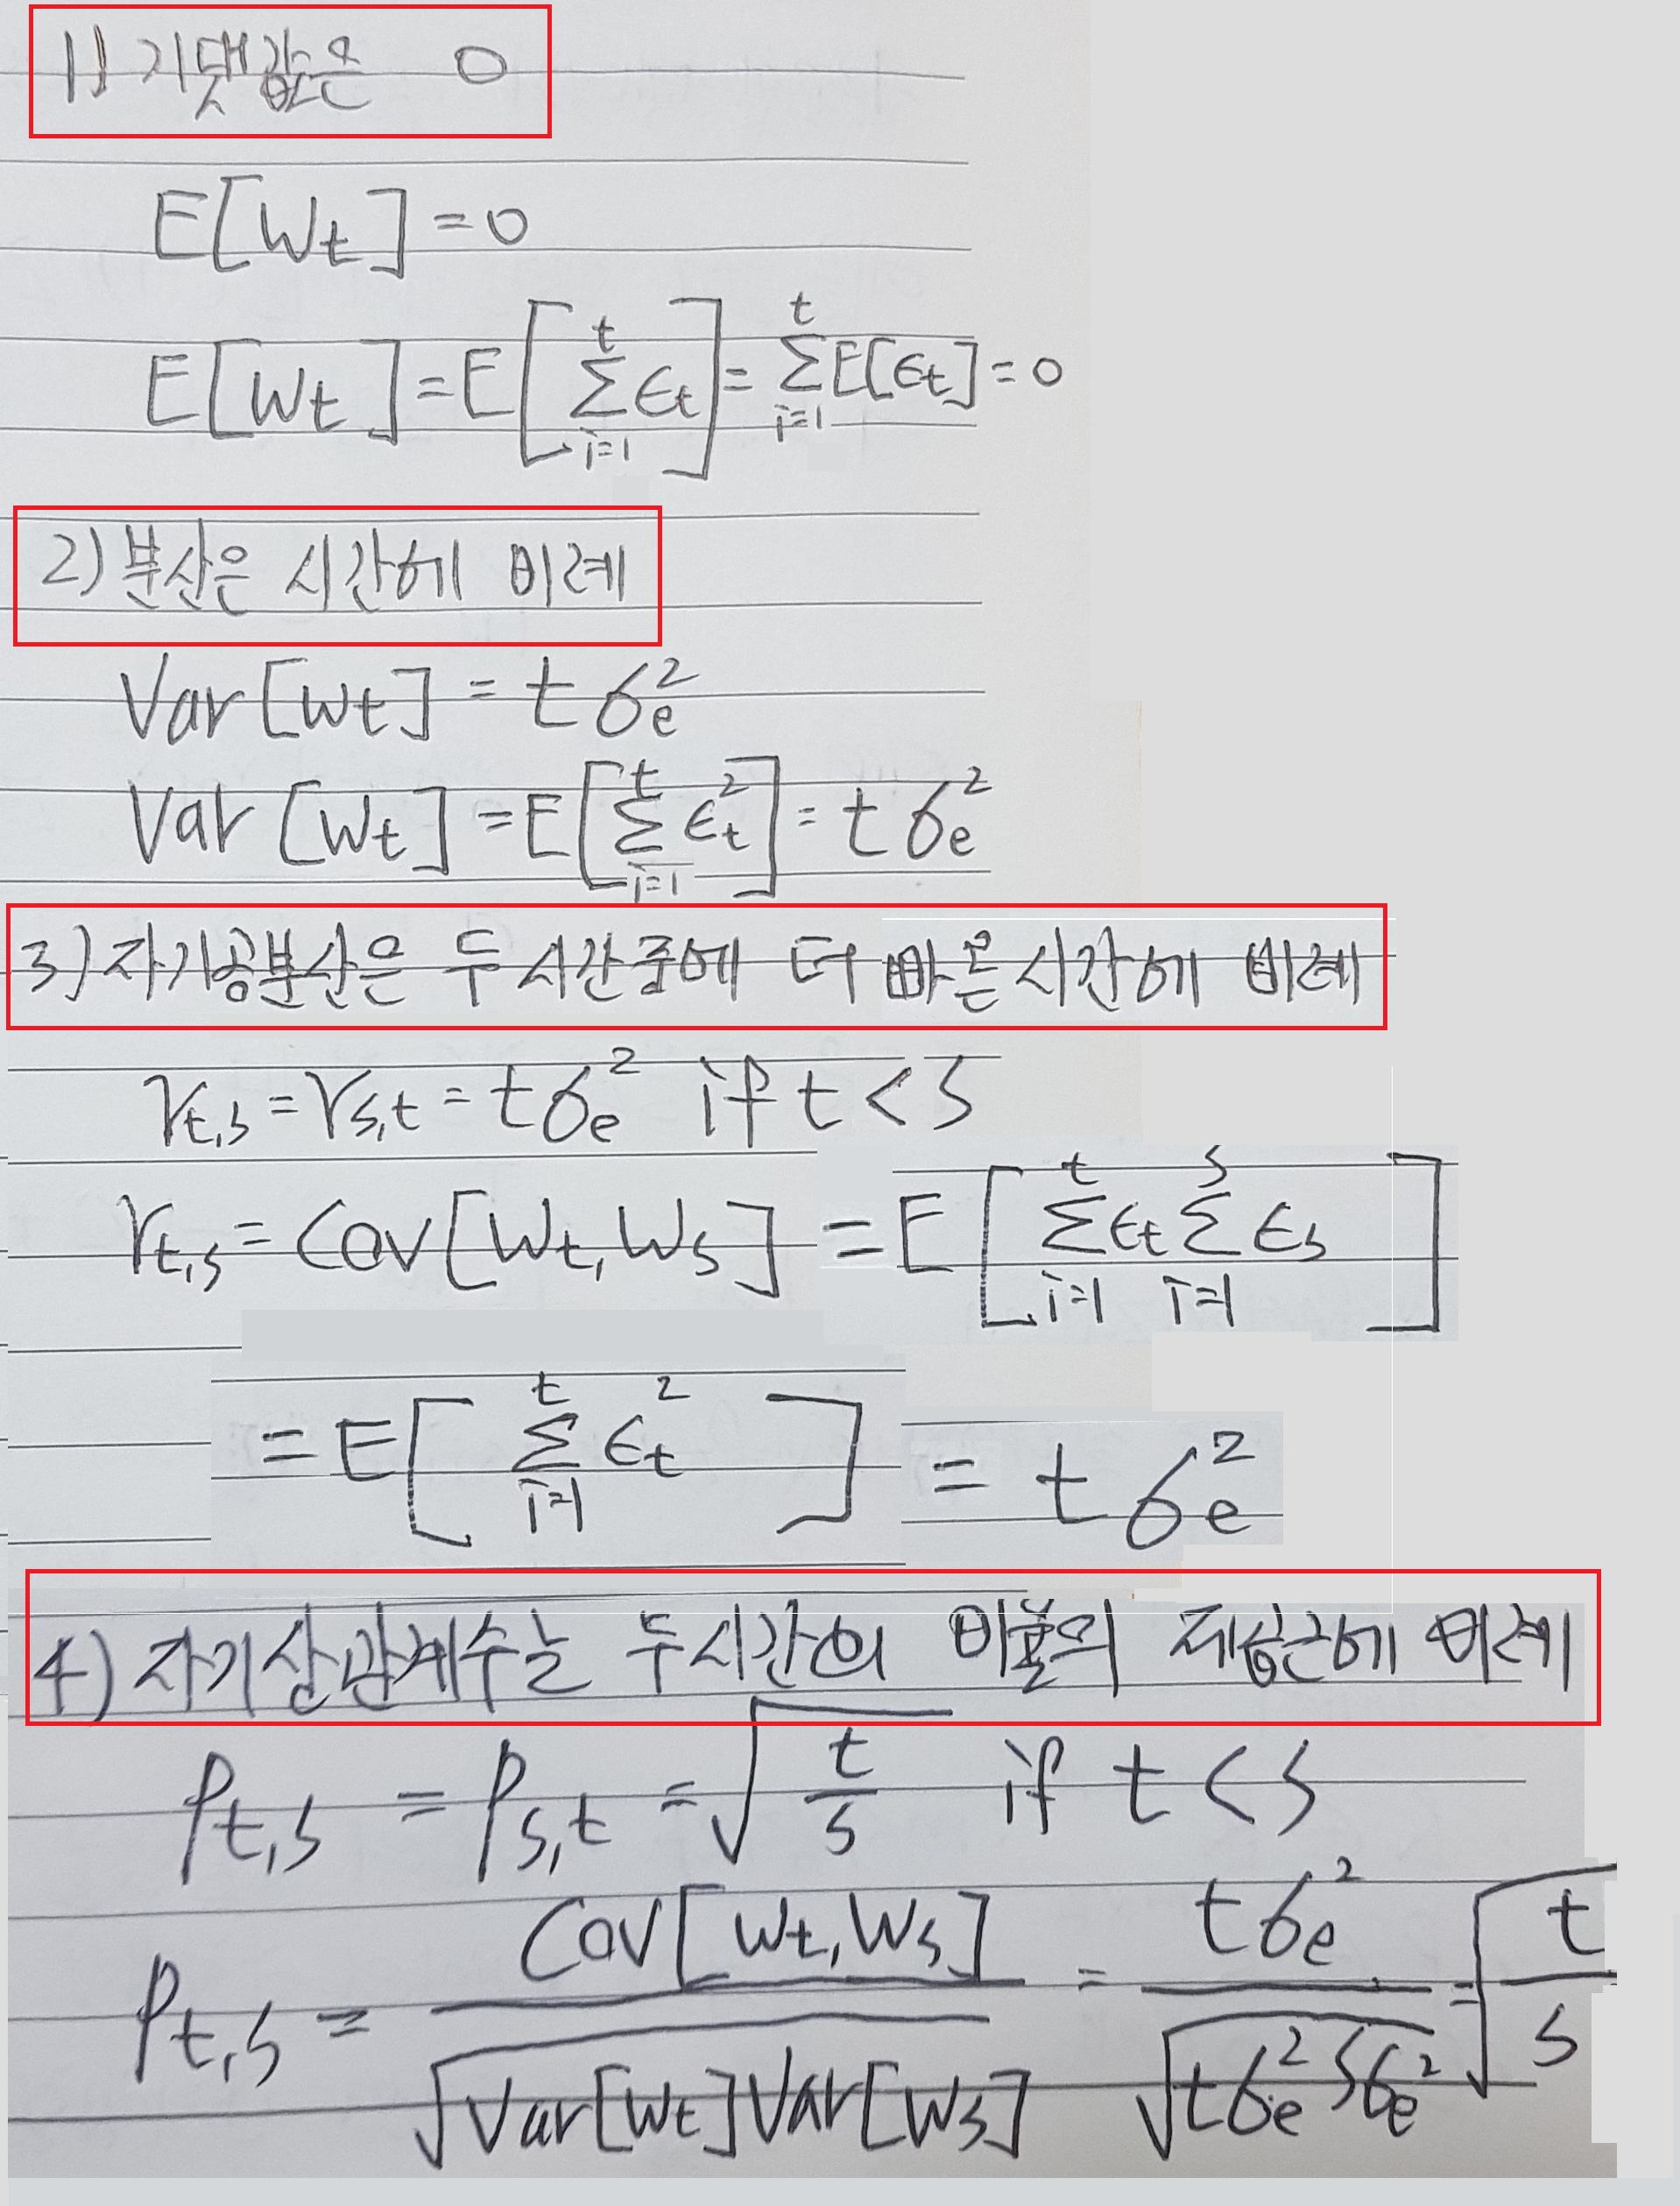 1) 기댓값은 0
E[Wt] = 0
E[Wt] = E[∑_{i=1}^{t} ϵt] = ∑_{i=1}^{t} E[ϵt] = 0
2) 분산은 시간에 비례
Var[Wt] = tσe²
Var[Wt] = E[∑_{i=1}^{t} ϵt²] = tσe²
3) 자기공분산은 두 시간중에 더 빠른 시간에 비례
γt,s = γs,t = tσe² if t < s
γt,s = Cov[Wt, Ws] = E[∑_{i=1}^{t} ϵt ∑_{i=1}^{s} ϵs]
= E[∑_{i=1}^{t} ϵt²] = tσe²
4) 자기상관계수는 두시간의 비율의 제곱근에 비례
ρt,s = ρs,t = √(t/s) if t < s
ρt,s = Cov[Wt, Ws] / √(Var[Wt]Var[Ws]) = tσe² / √(tσe² sσe²) = √(t/s)